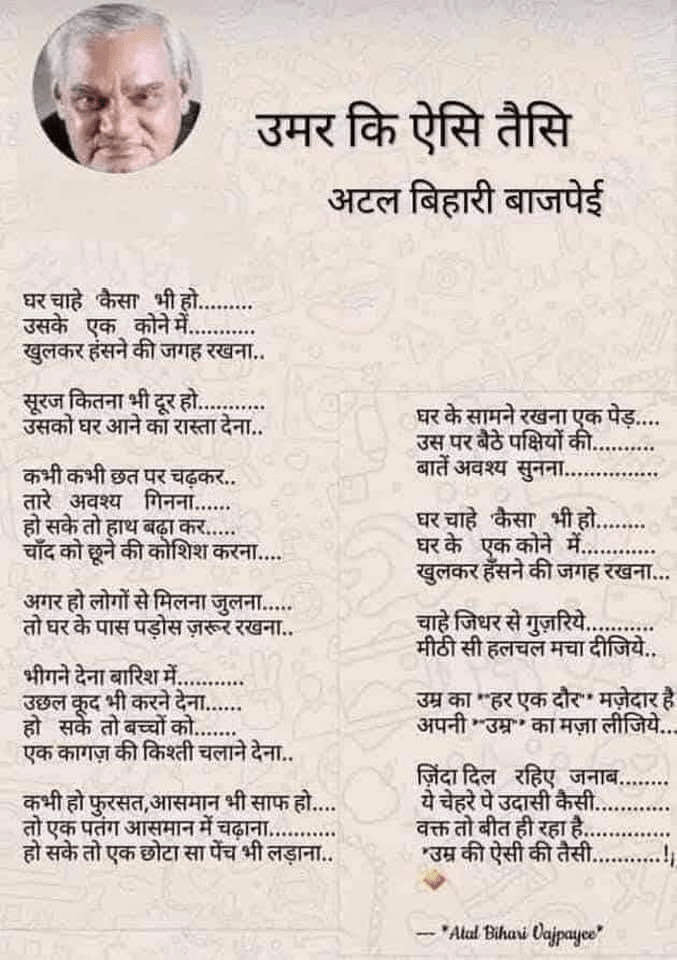 उमर कि ऐसि तैसि
अटल बिहारी बाजपेई
घर चाहे 'कैसा' भी हो.........
उसके एक कोने में...........
खुलकर हंसने की जगह रखना..
सूरज कितना भी दूर हो...........
उसको घर आने का रास्ता देना..
कभी कभी छत पर चढ़कर..
तारे अवश्य गिनना......
हो सके तो हाथ बढ़ा कर.....
चाँद को छूने की कोशिश करना....
अगर हो लोगों से मिलना जुलना.....
तो घर के पास पड़ोस ज़रूर रखना..
भीगने देना बारिश में...........
उछल कूद भी करने देना......
हो सके तो बच्चों को.......
एक कागज़ की किश्ती चलाने देना..
कभी हो फुरसत,आसमान भी साफ हो....
तो एक पतंग आसमान में चढ़ाना...........
हो सके तो एक छोटा सा पेंच भी लड़ाना..
घर के सामने रखना एक पेड़....
उस पर बैठे पक्षियों की..........
बातें अवश्य सुनना...............
घर चाहे 'कैसा' भी हो........
घर के एक कोने में............
खुलकर हँसने की जगह रखना...
चाहे जिधर से गुज़रिये...........
मीठी सी हलचल मचा दीजिये..
उम्र का *"हर एक दौर"* मज़ेदार है
अपनी *"उम्र"* का मज़ा लीजिये...
ज़िंदा दिल रहिए जनाब........
ये चेहरे पे उदासी कैसी............
वक्त तो बीत ही रहा है..............
*उम्र की ऐसी की तैसी...........!¡
— *Atal Bihari Vajpayee*